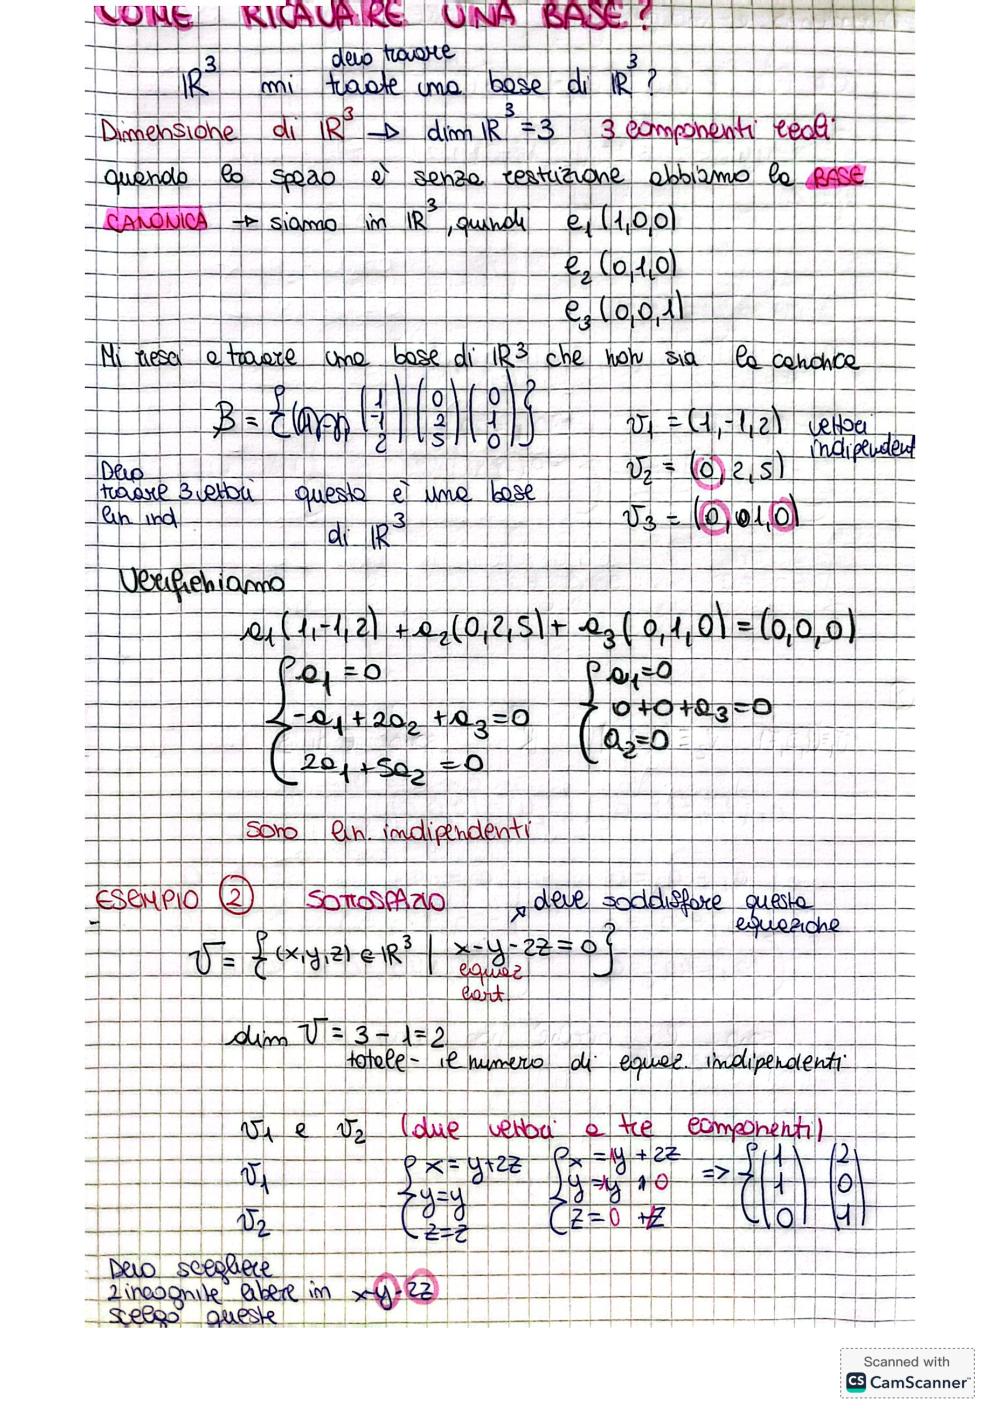 COME RICAVARE UNA BASE?
devo trovare
ℝ³ mi trovate una base di ℝ³?
Dimensione di ℝ³ → dim ℝ³ = 3 3 componenti reali
quando lo spazio è senza restrizione abbiamo la BASE
CANONICA → siamo in ℝ³, quindi e₁ (1,0,0)
e₂ (0,1,0)
e₃ (0,0,1)
Mi riesci a trovare una base di ℝ³ che non sia la canonica
B = { (1 -1 2) (0 2 5) (0 1 0) }
v₁ = (1,-1,2) vettori indipendent
v₂ = (0,2,5)
v₃ = (0,1,0)
Devo
trovare 3 vettori questa è una base
lin ind
di ℝ³
Verifichiamo
a₁(1,-1,2) + a₂(0,2,5) + a₃(0,1,0) = (0,0,0)
{ a₁ = 0 { a₁=0
-a₁ + 2a₂ + a₃ = 0 0+0+a₃=0
2a₁ + 5a₂ = 0 a₂=0
sono lin. indipendenti
ESEMPIO 2 SOTTOSPAZIO ↗ deve soddisfare questa
equazione
V = { (x,y,z) ∈ ℝ³ | x-y-2z=0 }
equaz
cart.
dim V = 3 - 1 = 2
totale - il numero di equaz. indipendenti
v₁ e v₂ (due vettori a tre componenti)
v₁ { x = y+2z { x = 1y + 2z => { (1 1 0) (2 0 1)
y=y y=1y 0
v₂ z=z z=0 +z
Devo scegliere
2 incognite libere in x-y-2z
scelgo queste
Scanned with
CS CamScanner